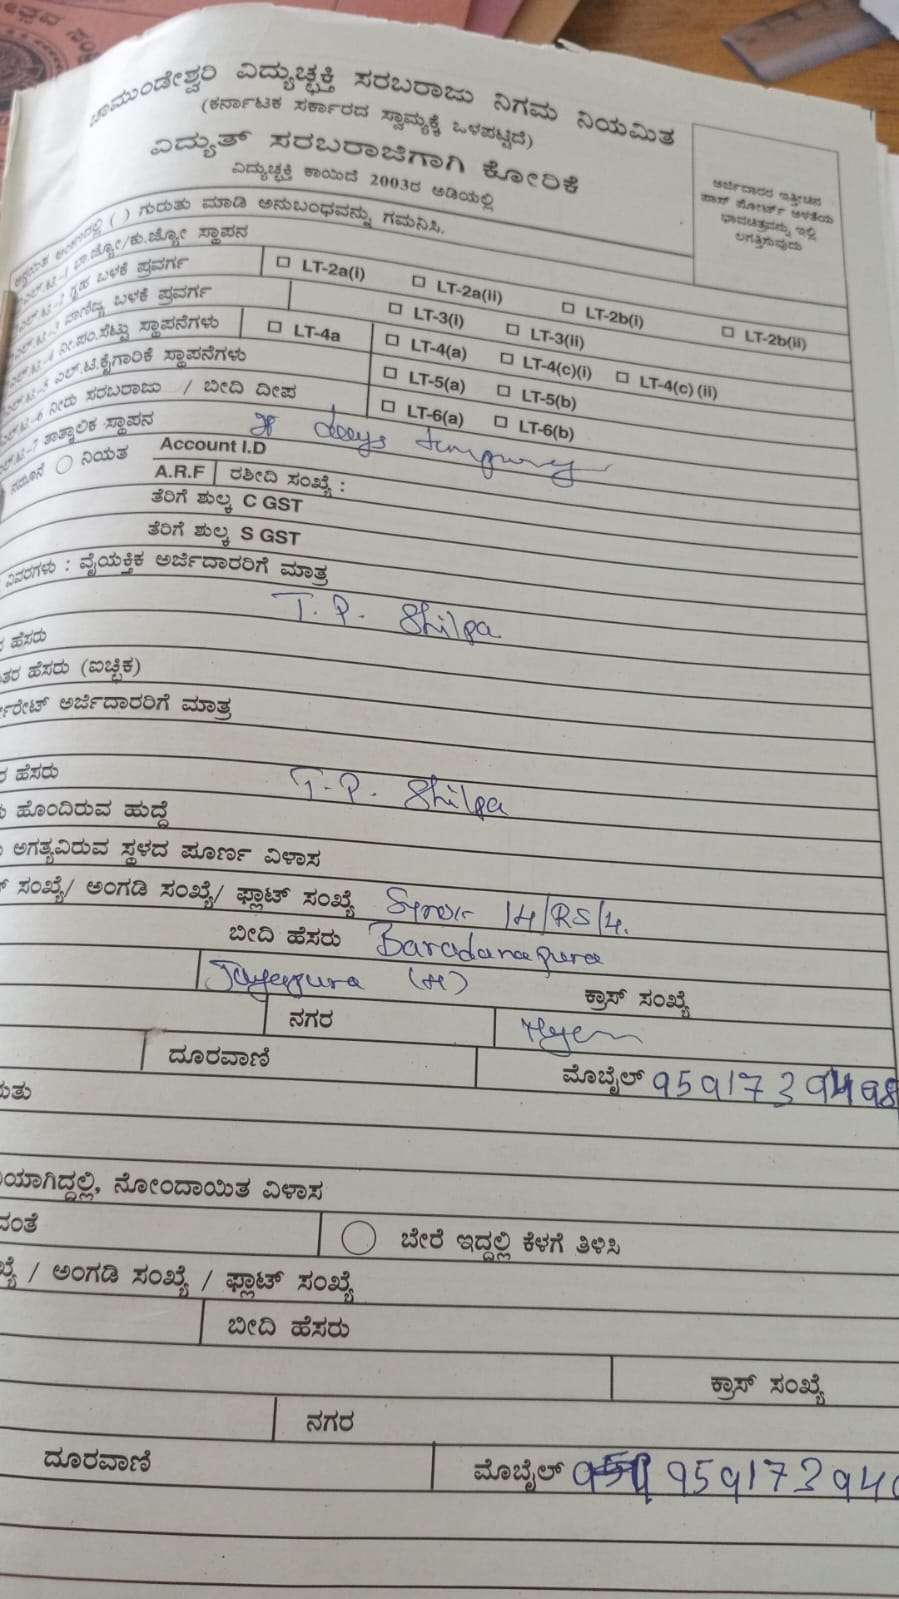 ಚಾಮುಂಡೇಶ್ವರಿ ವಿದ್ಯುಚ್ಛಕ್ತಿ ಸರಬರಾಜು ನಿಗಮ ನಿಯಮಿತ
(ಕರ್ನಾಟಕ ಸರ್ಕಾರದ ಸ್ವಾಮ್ಯಕ್ಕೆ ಒಳಪಟ್ಟಿದೆ)
ವಿದ್ಯುತ್ ಸರಬರಾಜಿಗಾಗಿ ಕೋರಿಕೆ
ವಿದ್ಯುಚ್ಛಕ್ತಿ ಕಾಯಿದೆ 2003ರ ಅಡಿಯಲ್ಲಿ
ಅರ್ಜಿದಾರರ ಇತ್ತೀಚಿನ
ಪಾಸ್ ಪೋರ್ಟ್ ಅಳತೆಯ
ಭಾವಚಿತ್ರವನ್ನು ಇಲ್ಲಿ
ಲಗತ್ತಿಸುವುದು
( ) ಗುರುತು ಮಾಡಿ ಅನುಬಂಧವನ್ನು ಗಮನಿಸಿ.
ಭಾ.ಜ್ಯೋ/ಕು.ಜ್ಯೋ ಸ್ಥಾಪನ
ಗೃಹ ಬಳಕೆ ಪ್ರವರ್ಗ LT-2a(i) LT-2a(ii) LT-2b(i) LT-2b(ii)
ವಾಣಿಜ್ಯ ಬಳಕೆ ಪ್ರವರ್ಗ LT-3(i) LT-3(ii)
ನೀ.ಪಂ.ಸೆಟ್ಟು ಸ್ಥಾಪನೆಗಳು LT-4a LT-4(a) LT-4(c)(i) LT-4(c) (ii)
ಎಲ್.ಟಿ.ಕೈಗಾರಿಕೆ ಸ್ಥಾಪನೆಗಳು LT-5(a) LT-5(b)
ನೀರು ಸರಬರಾಜು / ಬೀದಿ ದೀಪ LT-6(a) LT-6(b)
ತಾತ್ಕಾಲಿಕ ಸ್ಥಾಪನ days
ನಮೂನೆ ನಿಯತ Account I.D
A.R.F ರಶೀದಿ ಸಂಖ್ಯೆ :
ತೆರಿಗೆ ಶುಲ್ಕ C GST
ತೆರಿಗೆ ಶುಲ್ಕ S GST
ವಿವರಗಳು : ವೈಯಕ್ತಿಕ ಅರ್ಜಿದಾರರಿಗೆ ಮಾತ್ರ
T. P. Shilpa
ಹೆಸರು
ಹೆಸರು (ಐಚ್ಛಿಕ)
ಅರ್ಜಿದಾರರಿಗೆ ಮಾತ್ರ
ಹೆಸರು T. P. Shilpa
ಹೊಂದಿರುವ ಹುದ್ದೆ
ಅಗತ್ಯವಿರುವ ಸ್ಥಳದ ಪೂರ್ಣ ವಿಳಾಸ
ಸಂಖ್ಯೆ/ ಅಂಗಡಿ ಸಂಖ್ಯೆ/ ಫ್ಲಾಟ್ ಸಂಖ್ಯೆ 14/RS/4.
ಬೀದಿ ಹೆಸರು Baradanapura
Jayapura (H) ಕ್ರಾಸ್ ಸಂಖ್ಯೆ
ನಗರ
ದೂರವಾಣಿ ಮೊಬೈಲ್ 9591739498
ಯಾಗಿದ್ದಲ್ಲಿ, ನೋಂದಾಯಿತ ವಿಳಾಸ
ಬೇರೆ ಇದ್ದಲ್ಲಿ ಕೆಳಗೆ ತಿಳಿಸಿ
/ ಅಂಗಡಿ ಸಂಖ್ಯೆ / ಫ್ಲಾಟ್ ಸಂಖ್ಯೆ
ಬೀದಿ ಹೆಸರು
ಕ್ರಾಸ್ ಸಂಖ್ಯೆ
ನಗರ
ದೂರವಾಣಿ ಮೊಬೈಲ್ 95917394